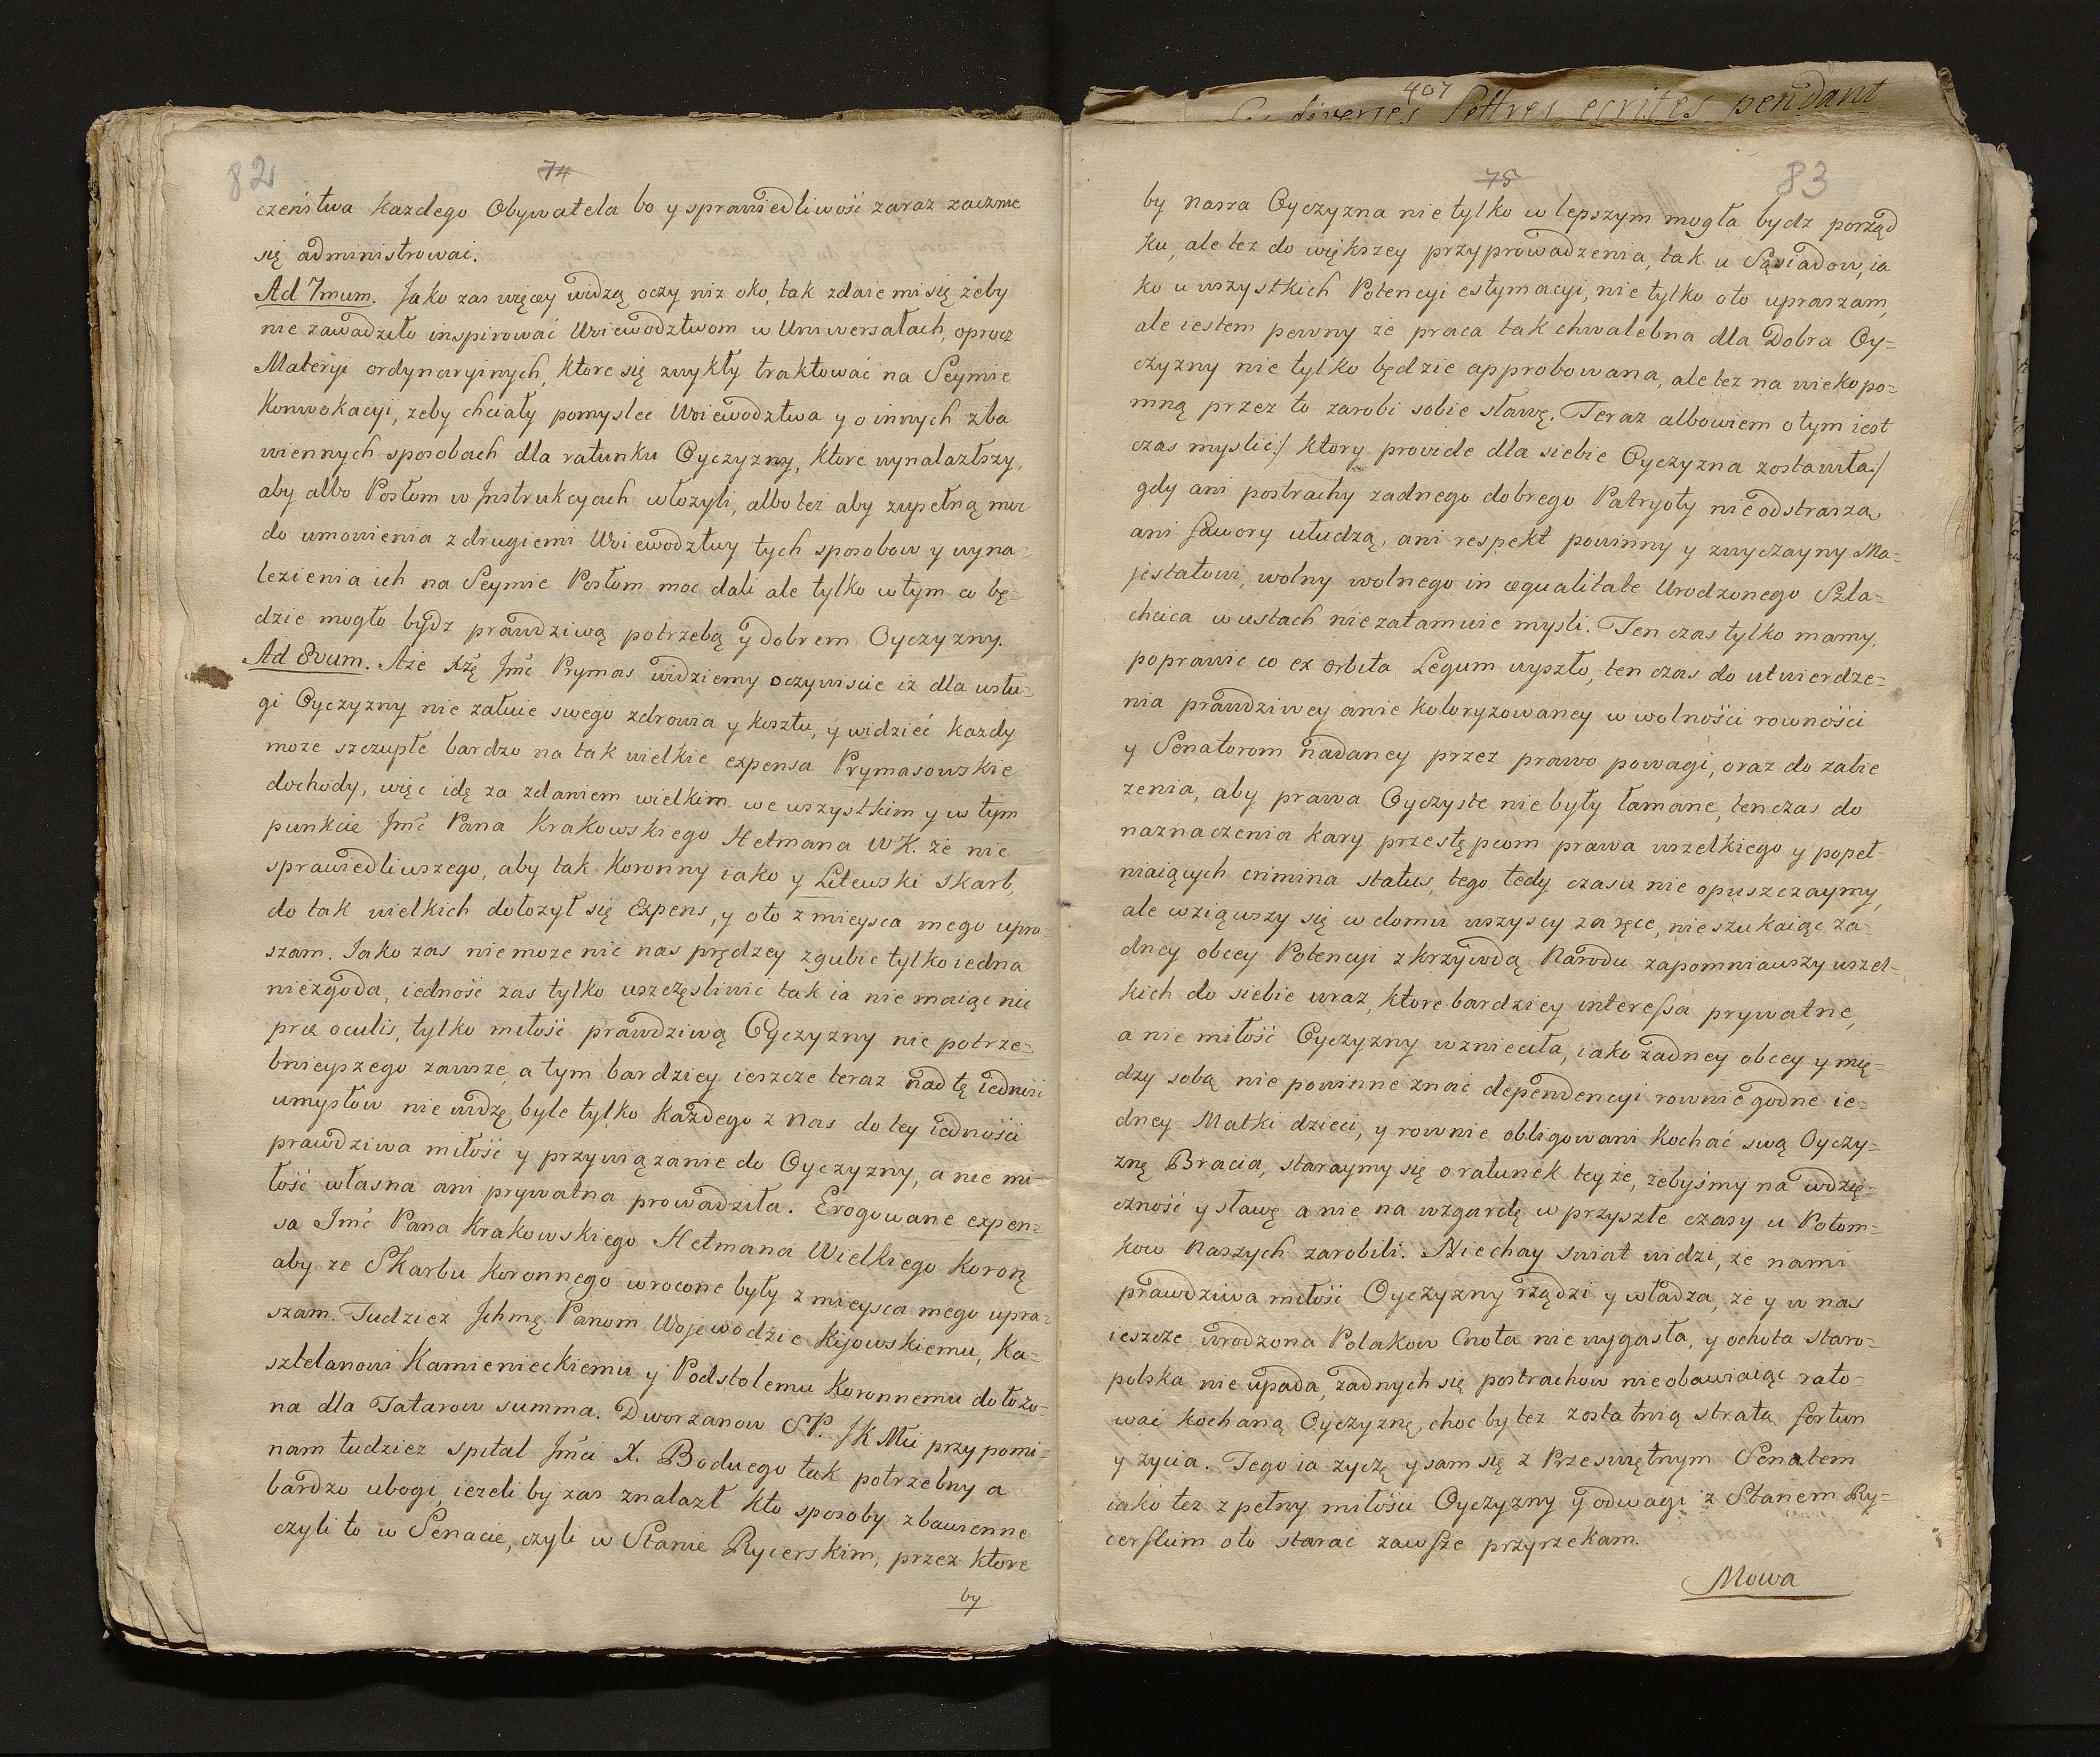 82
74
czeństwa kazdego Obywatela bo y sprawiedliwość zaraz zacznie
się administrować.
Ad 7mum. Jako zas więcey widzą oczy niz oko, tak zdaie mi się żeby
nie zawadziło inspirować Woiewodztwom w Uniwersałach, oprocz
Materyi ordynaryinych, ktore się zwykły traktować na Seymie
Konwokacyi, zeby chciały pomyslec Woiewodztwa y o innych zba
wiennych sposobach dla ratunku Oyczyzny, ktore wynalazłszy,
aby albo Posłom w Instrukcyach włozyli, albo też aby zupełną moc
do umowienia z drugiemi Woiewodztwy tych sposobow y wyna-
lezienia ich na Seymie Posłom moc dali ale tylko w tym co bę-
dzie mogło bydz prawdziwą potrzebą y dobrem Oyczyzny.
Ad 8vum. Aże Xżę Jmć Prymas widziemy oczywiscie iż dla usłu-
gi Oyczyzny nie załuie swego zdrowia y kosztu, y widzieć kazdy
moze szczupłe bardzo na tak wielkie expensa Prymasowskie
dochody, więc idę za zdaniem wielkim we wszystkim y w tym
punkcie Jmć Pana Krakowskiego Hetmana WK. że nic
sprawiedliwszego, aby tak Koronny iako y Litewski Skarb,
do tak wielkich dołozył się Expens, y oto z mieysca mego upra-
szam. Jako zas niemoze nic nas prędzey zgubic tylko iedna
niezgoda, iedność zas tylko uszczęsliwić tak ia nie maiąc nic
præ oculis, tylko miłość prawdziwą Oyczyzny nic potrze-
bnieyszego zawsze, a tym bardziey ieszcze teraz nad tę iedność
umysłow nie widzę byle tylko każdego z nas do tey iedności
prawdziwa miłość y przywiązanie do Oyczyzny, a nie mi-
łość własna ani prywatna prowadziła. Erogowane expen-
sa Jmć Pana Krakowskiego Hetmana Wielkiego Koroñ
aby ze Skarbu Koronnego wrocone były z mieysca mego upra-
szam. Tudziez Ichmę Panom Wojewodzie Kijowskiemu, Ka-
sztelanowi Kamienieckiemu y Podstolemu Koronnemu dołozo-
na dla Tatarow summa. Dworzanow SP. JK Mci przypomi-
nam tudziez spital Jmci X. Boduego tak potrzebny a
bardzo ubogi, iezeli by zas znalazł kto sposoby zbawienne
czyli to w Senacie, czyli w Stanie Rycerskim, przez ktore
by
407
diverses lettres ecrites pendant
75
83
by nasza Oyczyzna nie tylko w lepszym mogła bydz porząd
ku, ale tez do większey przyprowadzenia, tak u Sąsiadow, ia
ko u wszystkich Potencyi estymacyi, nie tylko oto upraszam,
ale iestem pewny że praca tak chwalebna dla Dobra Oy-
czyzny nie tylko będzie approbowana, ale tez na wiekopo-
mną przez to zarobi sobie sławę. Teraz albowiem o tym iest
czas myslić:/ ktory provide dla siebie Oyczyzna zostawiła:/
gdy ani postrachy zadnego dobrego Patryoty nie odstraszą,
ani fawory ułudzą, ani respekt powinny y zwyczayny Ma-
jestatowi, wolny wolnego in æqualitate Urodzonego Szla-
chcica w ustach niezatamuie mysli. Ten czas tylko mamy
poprawić co ex orbita Legum wyszło, ten czas do utwierdze-
nia prawdziwey a nie koloryzowaney w wolności rowności
y Senatorom nadaney przez prawo powagi, oraz do zabie
zenia, aby prawa Oyczyste nie były łamane, ten czas do
naznaczenia kary przestępcom prawa wszelkiego y popeł-
niaiących crimina status, tego tedy czasu nie opuszczaymy,
ale wziąwszy się w domu wszyscy za ręce, nie szukaiąc za-
dney obcey Potencyi z krzywdą Narodu zapomniawszy wszel-
kich do siebie uraz, ktore bardziey interessa prywatne,
a nie miłość Oyczyzny wznieciła, iako żadney obcey y mię-
dzy sobą nie powinne znać dependencyi rownie godne ie-
dney Matki dzieci, y rownie obligowani kochać swą Oyczy-
znę Bracia, staraymy się o ratunek teyże, zebyśmy na wdzię-
czność y sławę a nie na wzgardę w przyszłe czasy u Potom-
kow naszych zarobili. Niechay swiat widzi, ze nami
prawdziwa miłość Oyczyzny rządzi y władza, że y w nas
ieszcze wrodzona Polakow Cnota nie wygasła, y ochota staro-
polska nie upada, zadnych się postrachow nieobawiaiąc rato-
wać kochaną Oyczyznę, choc by tez z ostatnią stratą fortun
y zycia. Tego ia zyczę y sam się z Przeswiętnym Senatem
iako tez z pełny miłości Oyczyzny y odwagi z Stanem Ry-
cerskim oto starać zawsze przyrzekam.
Mowa